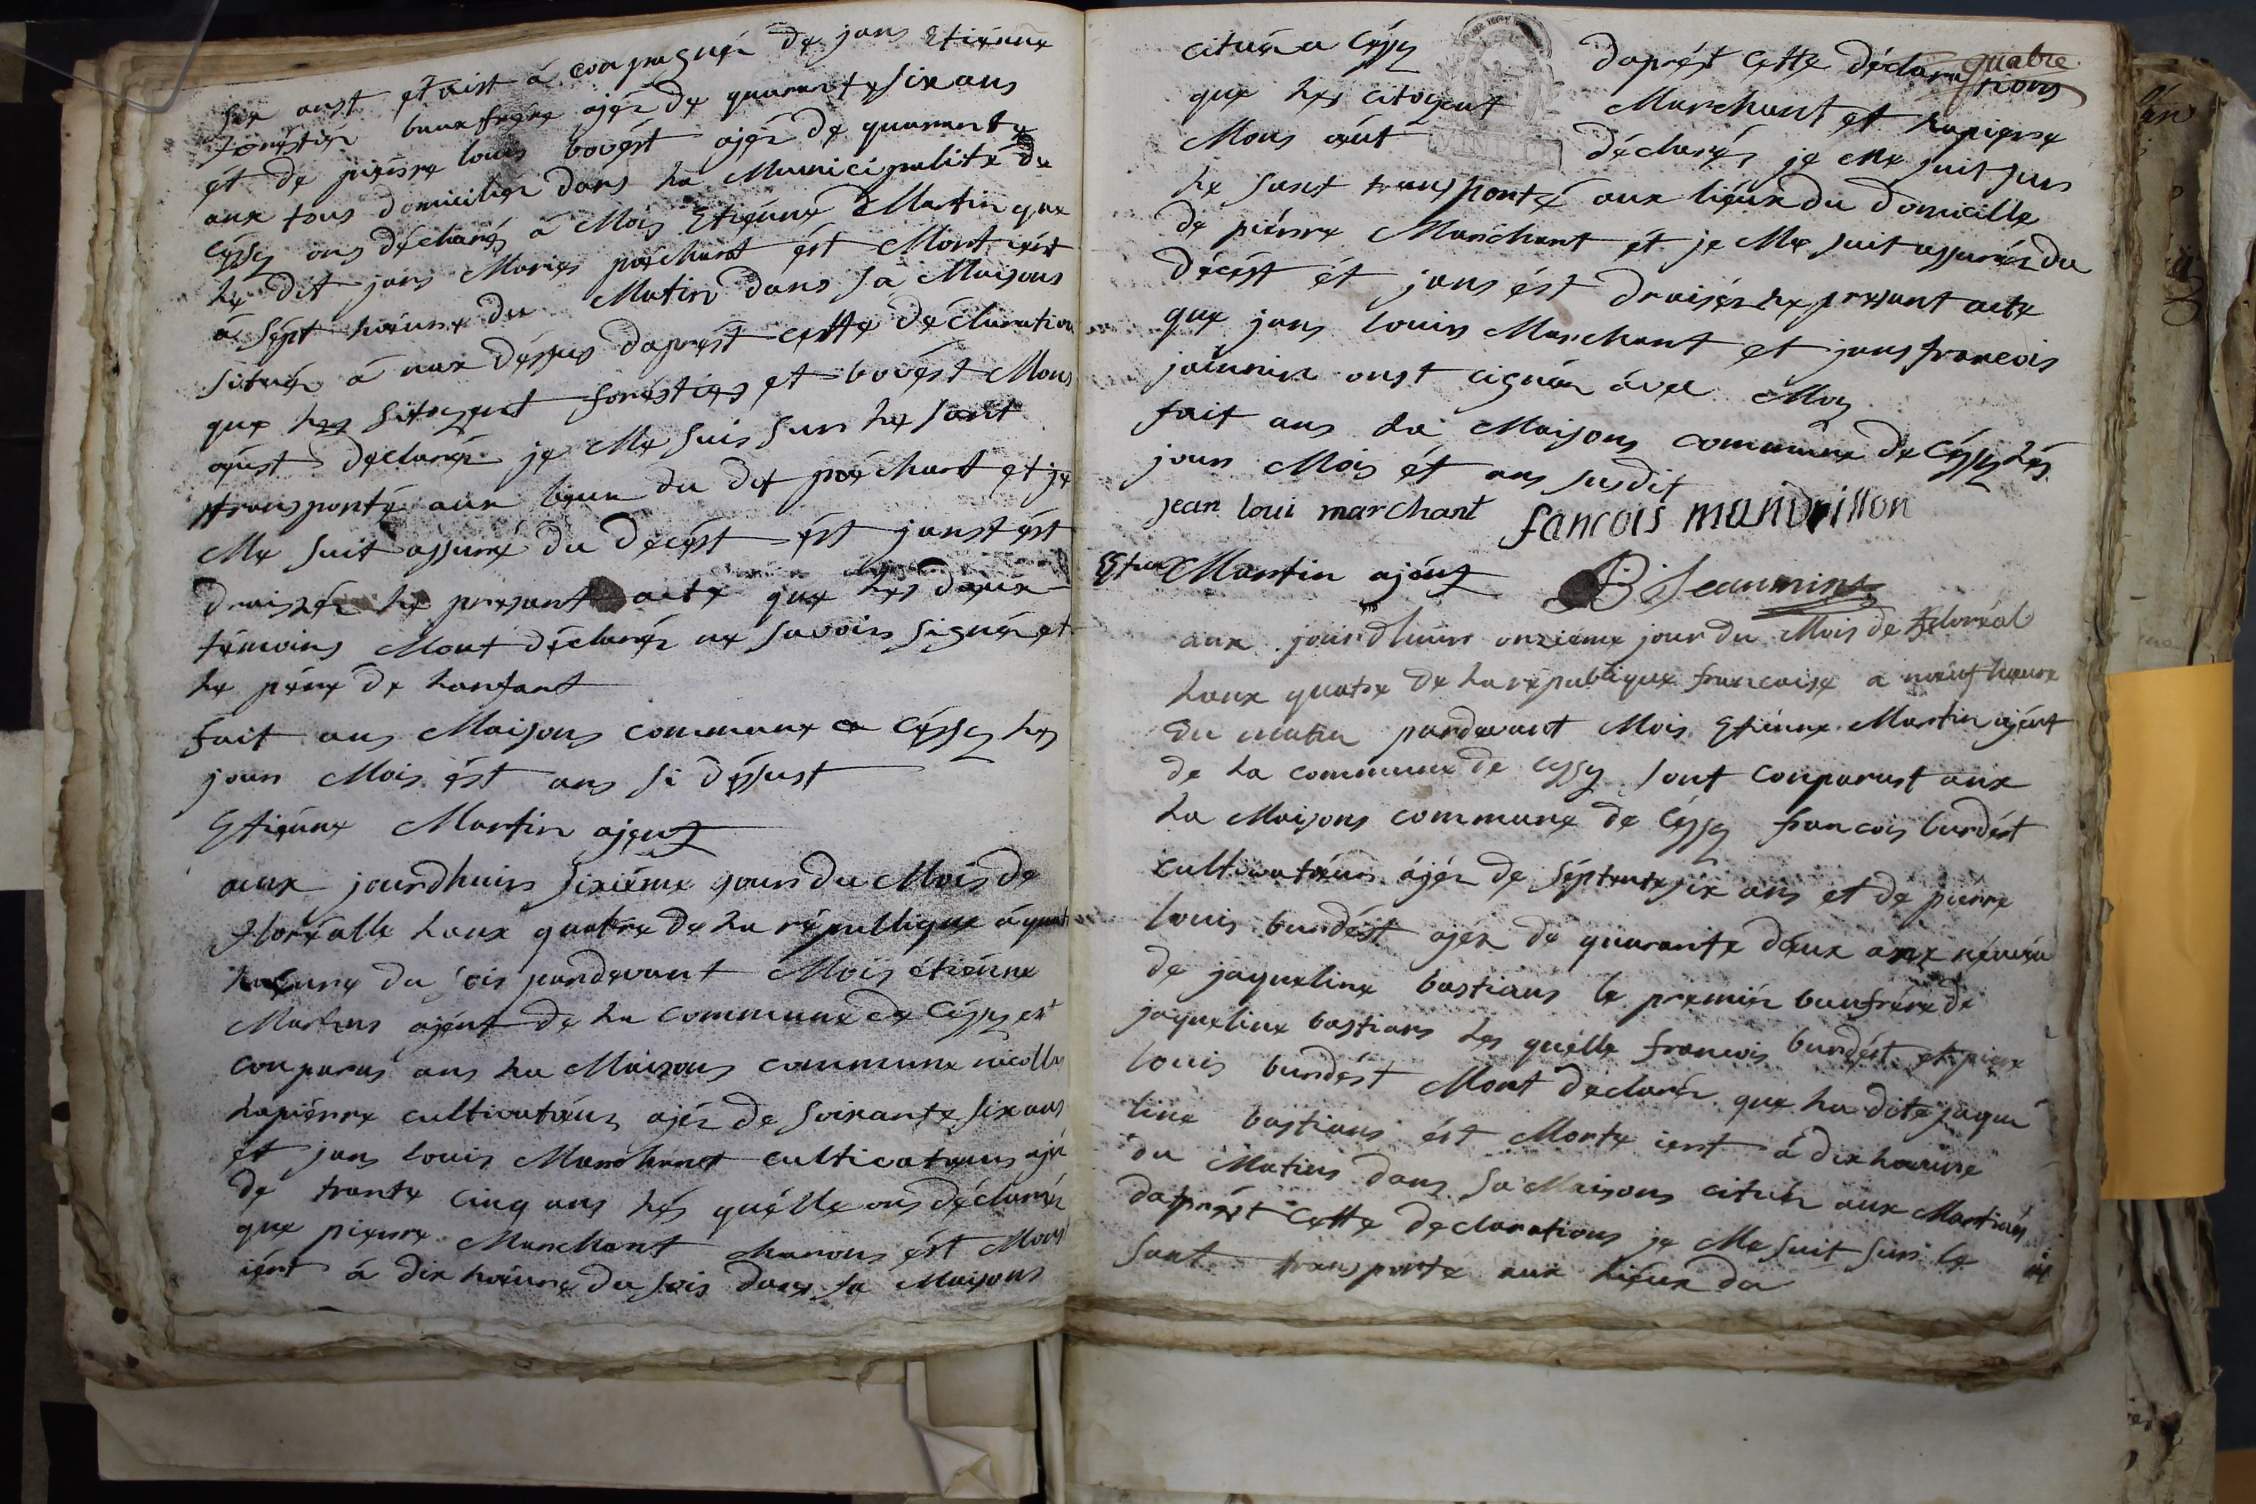 six anst etoist á conpagnér de jans Etiénne
foréstiér baux frére ajér de quarante six ans
ét de piérre louis bovést ajér de quarante
aux tous domicilier dans la Municipalité de
Céssy ons déclarér á Mois Etiénne Martin que
le dit jans Maries péchant ést Mort iért
á sépt haéure du Matin dans sa Maisons
situér á nax déssus daprést cette déclaration
que les sitoyent foréstier et bovést Mons
aûst déclarér je Me suis sur le sant
transporté aux lieux du dit péchant et je
Me suit assuré du décést ést janst ést
draisér le présant acte que les deuix
témoins Mont déclarér ne savoir signér et
le pére de lanfant
fait ans Maisons commune a Céssy les
jour Mois ést ans si déssust
Etiénne Martin ajent
aux jourdhuis sixiéme jour du Mois de
floréalle laux quatre de la république á quatre
haeure du sois pardevant Mois étiénne
Martins ajént de la commune de Céssy est
conparus ans la Maisons commune nicolle
lapiérre cultivatéur ajér de soixante six ans
et jans louis Marchant cultivateur ajér
de trante cinq ans lés quélle ons déclarér
que piérre Marchant charons ést Mort
iért á dix haéure du sois dans sa Maisons
quatre
cituér a Céssy daprést cette déclarations
que les citoyent Marchant et lapierre
Mons aûst déclarér je Me suit sur
le sant transporté aux lieux du domicille
de piérre Marchant ét je Me suit assurér du
décést ét jans ést draisér le presant acte
que jans louis Marchant et jans francois
jainnin onst cignér avec Mois
fait ans la Maisons commune de Céssy lés
jour Mois ét ans susdit
jean loui marchant fancois mandrillon
Etiene Martin ajént
J Jeannin
aux jourdhuis onziéme jour du Mois de floréal
laux quatre de la république francaise a neuf haeure
du matin pardevant Mois Etiénne Martin ajént
de la commune de Cessy sont conparust aux
la Maisons commune de Céssy francois burdést
cultivatéur ájér de séptante six ans et de piérre
louis burdést ajér de quarante deux ans névéu
de jaqueline bastians le premiér beufrére de
jaqueline bastians les quélle francois burdést et piere
louis burdést Mont déclarér que la dite jaque
line bastians ést Morte iert á dix haeure
du Matins dans sa Maisons cituér aux Martinés
daprést cette declarations je Me suit sur le
sant transporte aux lieux du